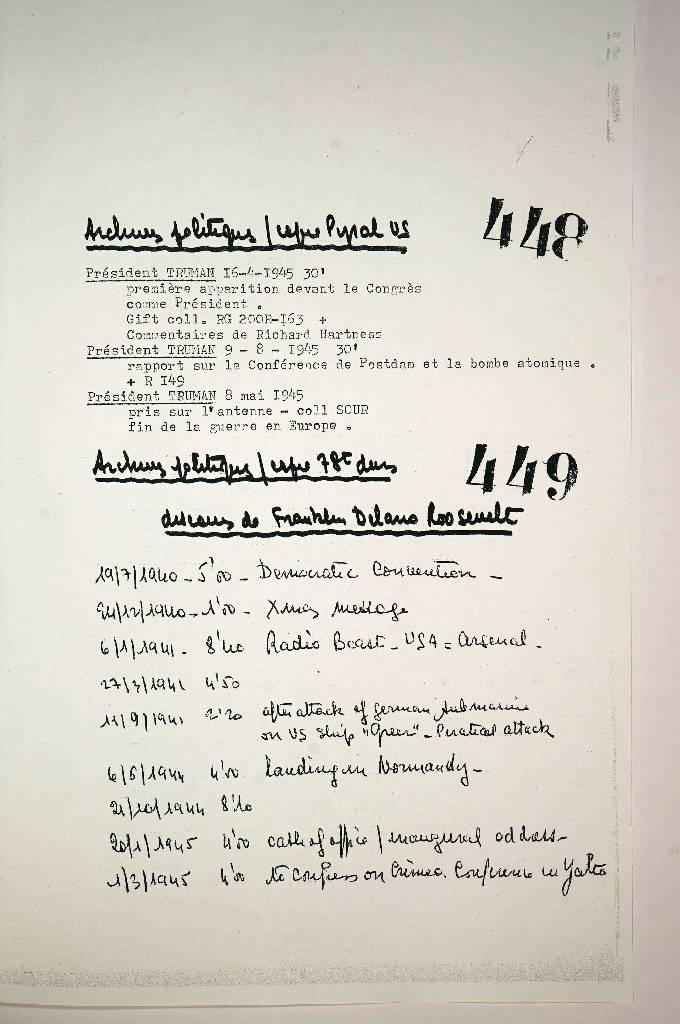 Archives politiques / copie Pyral US 448
Président TRUMAN I6-4-I945 30'
première apparition devant le Congrès
comme Président .
Gift coll. RG 200R-I63 +
Commentaires de Richard Hartness
Président TRUMAN 9 - 8 - I945 30'
rapport sur la Conférence de Postdam et la bombe atomique .
+ R I49
Président TRUMAN 8 mai I945
pris sur l'antenne - coll SOUR
fin de la guerre en Europe .
Archives politiques / copie 78t 449
discours de Franklin Delano Roosevelt
19/7/1940 - 5'00 - Democratic Convention -
24/12/1940 - 1'00 - Xmas message
6/1/1941 - 8'40 Radio - USA = Arsenal -
27/3/1941 4'50
11/9/1941 2'20 after attack of german submarine
on US ship "Greer" - Piratical attack
6/6/1944 4'00 Landing in Normandy -
21/10/1944 8'10
20/1/1945 4'00 oath of office / inaugural address -
1/3/1945 4'00 to Congress on Crimea. Conference in Yalta